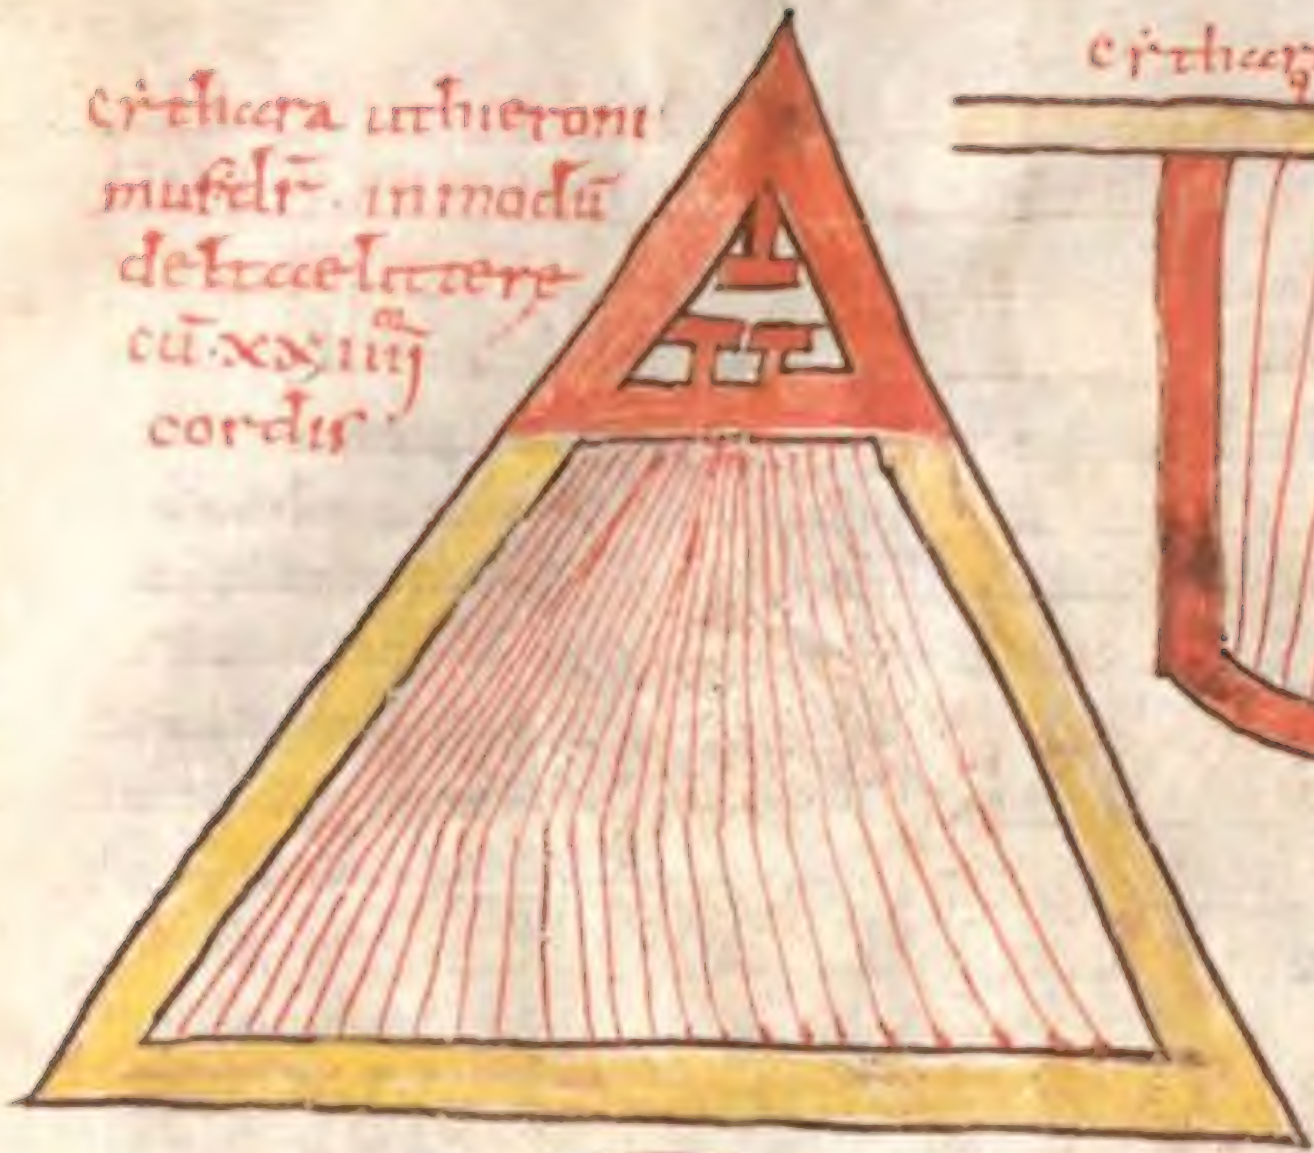 cythara ut hieroni
mus dr̄ · in modū
deltae littere
cū · xxiiij
cordis ·
cythar